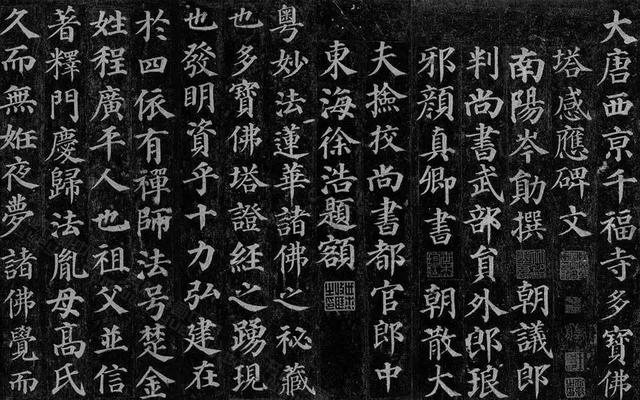 大唐西京千福寺多寶佛
塔感應碑文
南陽岑勛撰 朝議郎
判尚書武部員外郎琅
邪顏真卿書 朝散大
夫撿挍尚書都官郎中
東海徐浩題額
粵妙法蓮華諸佛之秘藏
也多寶佛塔證經之踴現
也發明資乎十力弘建在
於四依有禪師法号楚金
姓程廣平人也祖父並信
著釋門慶歸法胤母高氏
久而無姙夜夢諸佛覺而